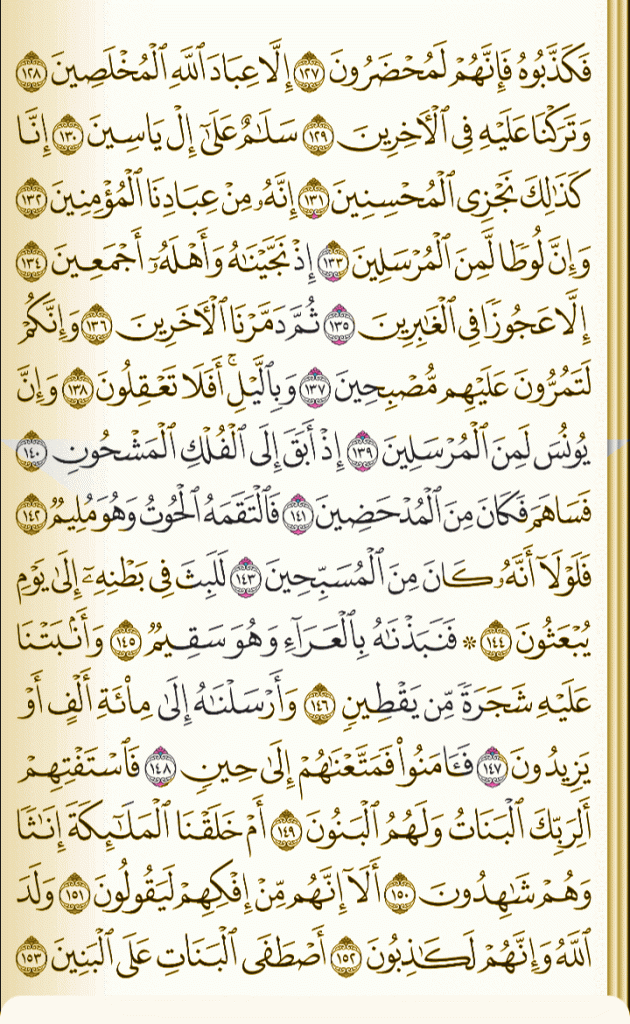 فَكَذَّبُوهُ فَإِنَّهُمْ لَمُحْضَرُونَ ١٢٧ إِلَّا عِبَادَ ٱللَّهِ ٱلْمُخْلَصِينَ ١٢٨
وَتَرَكْنَا عَلَيْهِ فِى ٱلْءَاخِرِينَ ١٢٩ سَلَٰمٌ عَلَىٰٓ إِلْ يَاسِينَ ١٣٠ إِنَّا
كَذَٰلِكَ نَجْزِى ٱلْمُحْسِنِينَ ١٣١ إِنَّهُۥ مِنْ عِبَادِنَا ٱلْمُؤْمِنِينَ ١٣٢
وَإِنَّ لُوطًا لَّمِنَ ٱلْمُرْسَلِينَ ١٣٣ إِذْ نَجَّيْنَٰهُ وَأَهْلَهُۥٓ أَجْمَعِينَ ١٣٤
إِلَّا عَجُوزًا فِى ٱلْغَٰبِرِينَ ١٣٥ ثُمَّ دَمَّرْنَا ٱلْءَاخَرِينَ ١٣٦ وَإِنَّكُمْ
لَتَمُرُّونَ عَلَيْهِم مُّصْبِحِينَ ١٣٧ وَبِٱلَّيْلِ ۗ أَفَلَا تَعْقِلُونَ ١٣٨ وَإِنَّ
يُونُسَ لَمِنَ ٱلْمُرْسَلِينَ ١٣٩ إِذْ أَبَقَ إِلَى ٱلْفُلْكِ ٱلْمَشْحُونِ ١٤٠
فَسَاهَمَ فَكَانَ مِنَ ٱلْمُدْحَضِينَ ١٤١ فَٱلْتَقَمَهُ ٱلْحُوتُ وَهُوَ مُلِيمٌ ١٤٢
فَلَوْلَآ أَنَّهُۥ كَانَ مِنَ ٱلْمُسَبِّحِينَ ١٤٣ لَلَبِثَ فِى بَطْنِهِۦٓ إِلَىٰ يَوْمِ
يُبْعَثُونَ ١٤٤ ۞ فَنَبَذْنَٰهُ بِٱلْعَرَآءِ وَهُوَ سَقِيمٌ ١٤٥ وَأَنۢبَتْنَا
عَلَيْهِ شَجَرَةً مِّن يَقْطِينٍ ١٤٦ وَأَرْسَلْنَٰهُ إِلَىٰ مِا۟ئَةِ أَلْفٍ أَوْ
يَزِيدُونَ ١٤٧ فَـَٔامَنُوا۟ فَمَتَّعْنَٰهُمْ إِلَىٰ حِينٍ ١٤٨ فَٱسْتَفْتِهِمْ
أَلِرَبِّكَ ٱلْبَنَاتُ وَلَهُمُ ٱلْبَنُونَ ١٤٩ أَمْ خَلَقْنَا ٱلْمَلَٰٓئِكَةَ إِنَٰثًا
وَهُمْ شَٰهِدُونَ ١٥٠ أَلَآ إِنَّهُم مِّنْ إِفْكِهِمْ لَيَقُولُونَ ١٥١ وَلَدَ
ٱللَّهُ وَإِنَّهُمْ لَكَٰذِبُونَ ١٥٢ أَصْطَفَى ٱلْبَنَاتِ عَلَى ٱلْبَنِينَ ١٥٣